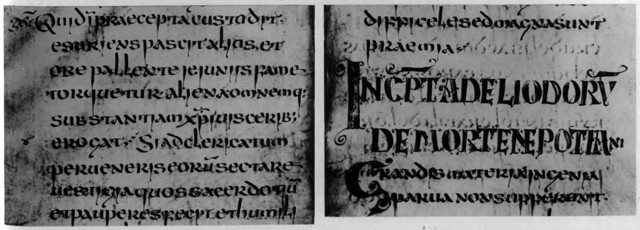 praecepta custodit
esuriens pascit alios et
ore pallente ieiuniis fame
torquetur aliena omnemq;
substantiam xpi uiscerib;
erogat Si ad clericatum
perueneris eorū sectare
uestigia quos
et pauperes et humili
difficiles sed magna sunt
praemia
INCP̄T AD ELIODORV̄
DE MORTE NEPOTIANI
Grandes materias ingenia
parua non sufferunt